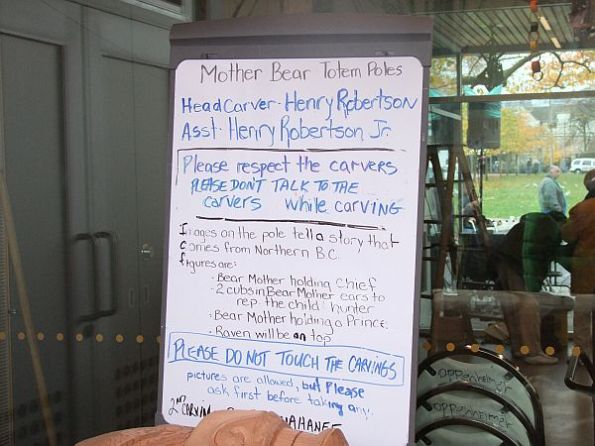 Mother Bear Totem Poles
Head Carver - Henry Robertson
Asst - Henry Robertson Jr.
Please respect the carvers
PLEASE DON'T TALK TO THE
carvers while carving
Images on the pole tell a story that
comes from Northern B.C.
figures are:
- Bear Mother holding Chief
- 2 cubs in Bear Mother ears to
rep. the child hunter
- Bear Mother holding a Prince
- Raven will be on top
PLEASE DO NOT TOUCH THE CARVINGS
pictures are allowed, but Please
ask first before taking any.
2nd CARVIN
oppenheimer
oppenheimer